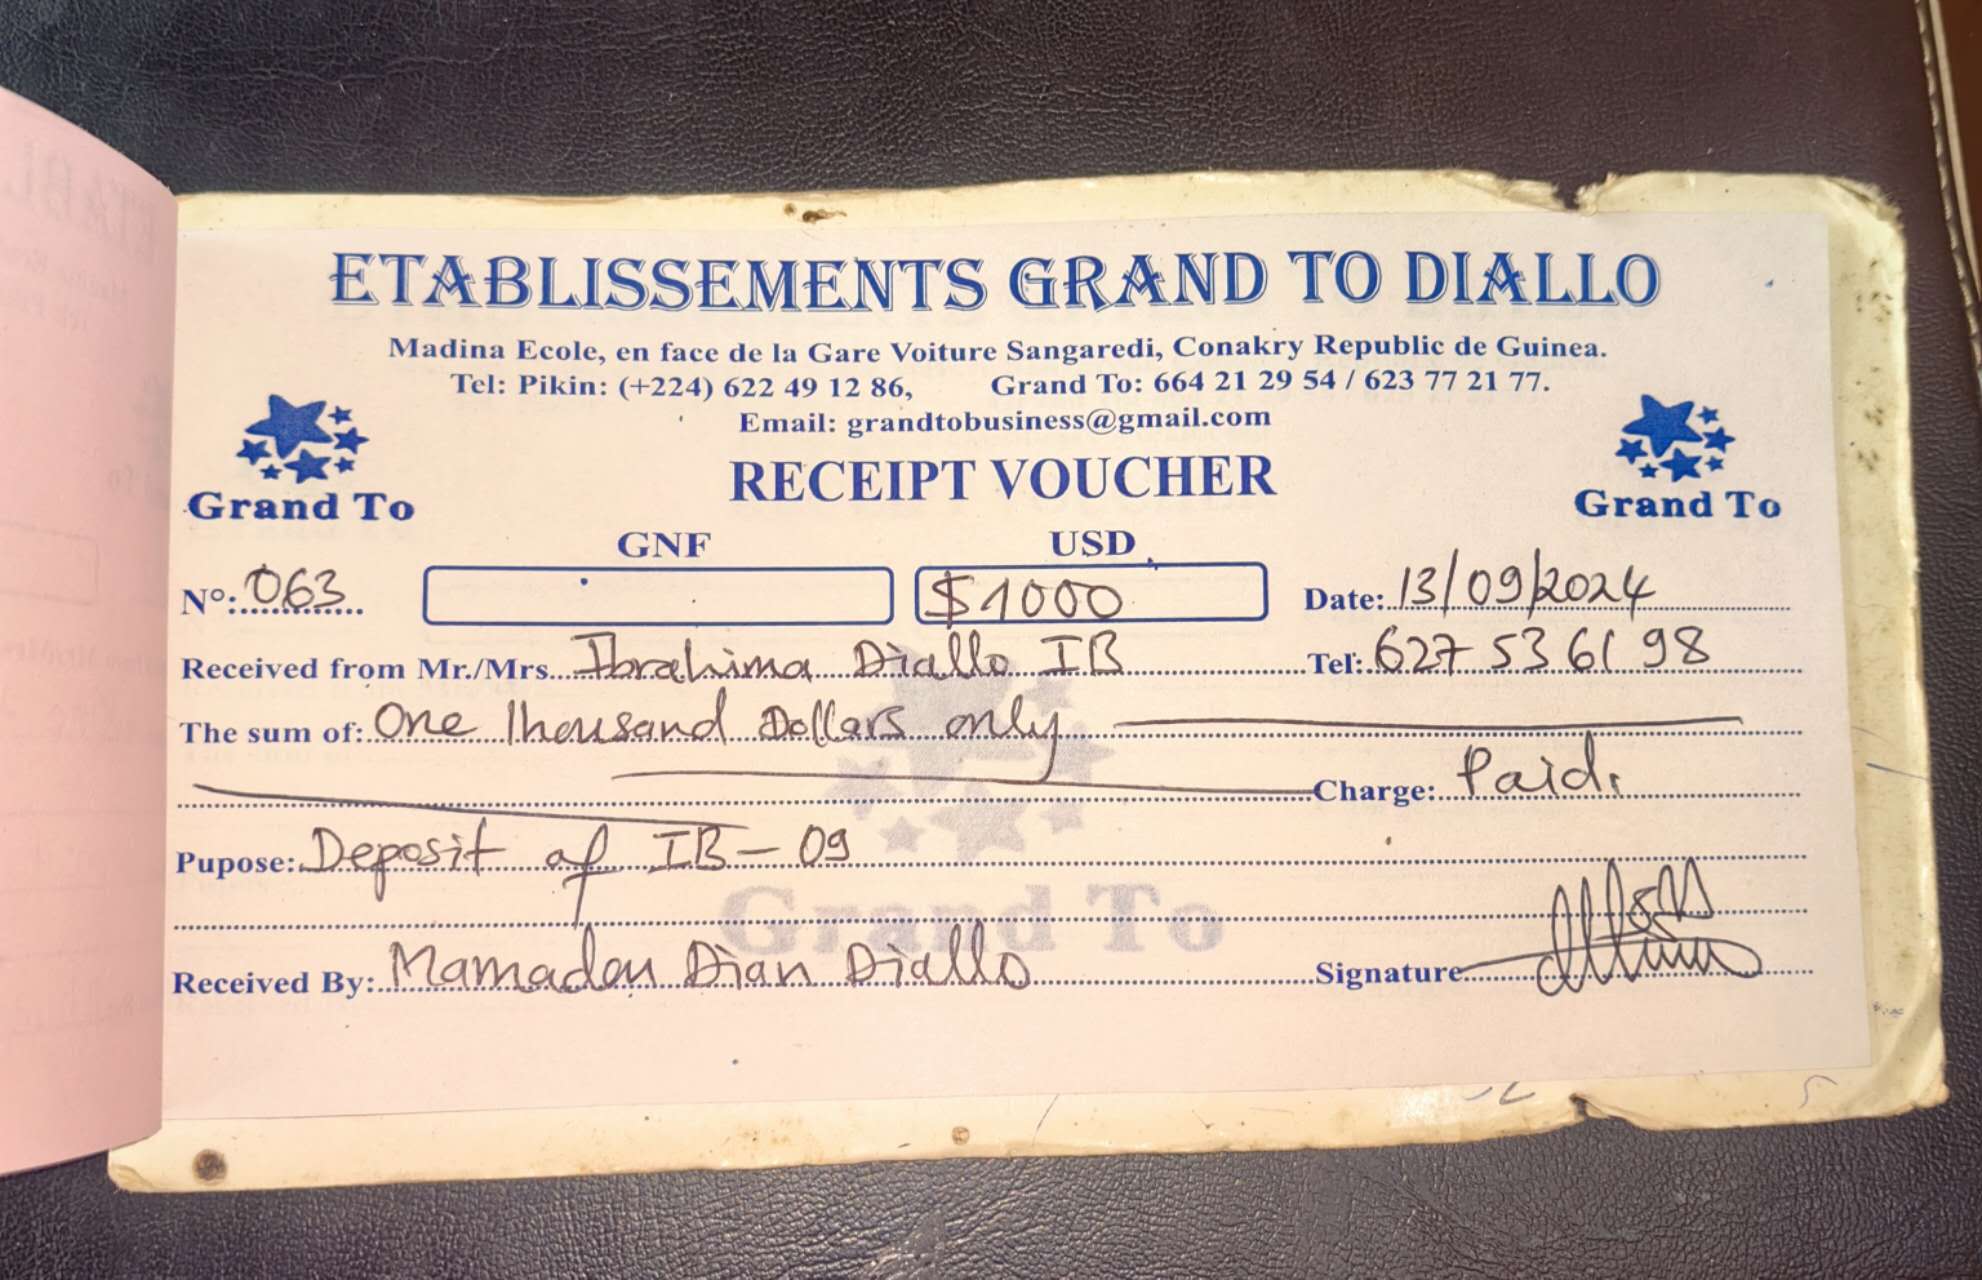 ETABLISSEMENTS GRAND TO DIALLO
Madina Ecole, en face de la Gare Voiture Sangaredi, Conakry Republic de Guinea.
Tel: Pikin: (+224) 622 49 12 86, Grand To: 664 21 29 54 / 623 77 21 77.
Email: grandtobusiness@gmail.com
Grand To RECEIPT VOUCHER Grand To
GNF USD
Nº: 063 $1000 Date: 13/09/2024
Received from Mr./Mrs. Ibrahima Diallo IB Tel: 627 53 61 98
The sum of: One Thousand Dollars only
Charge: Paid.
Pupose: Deposit of IB-09
Grand To
Received By: Mamadou Dian Diallo Signature